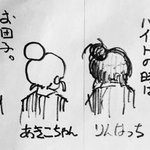 バイトの時は
お団子。
あきこちゃん
りんはっち